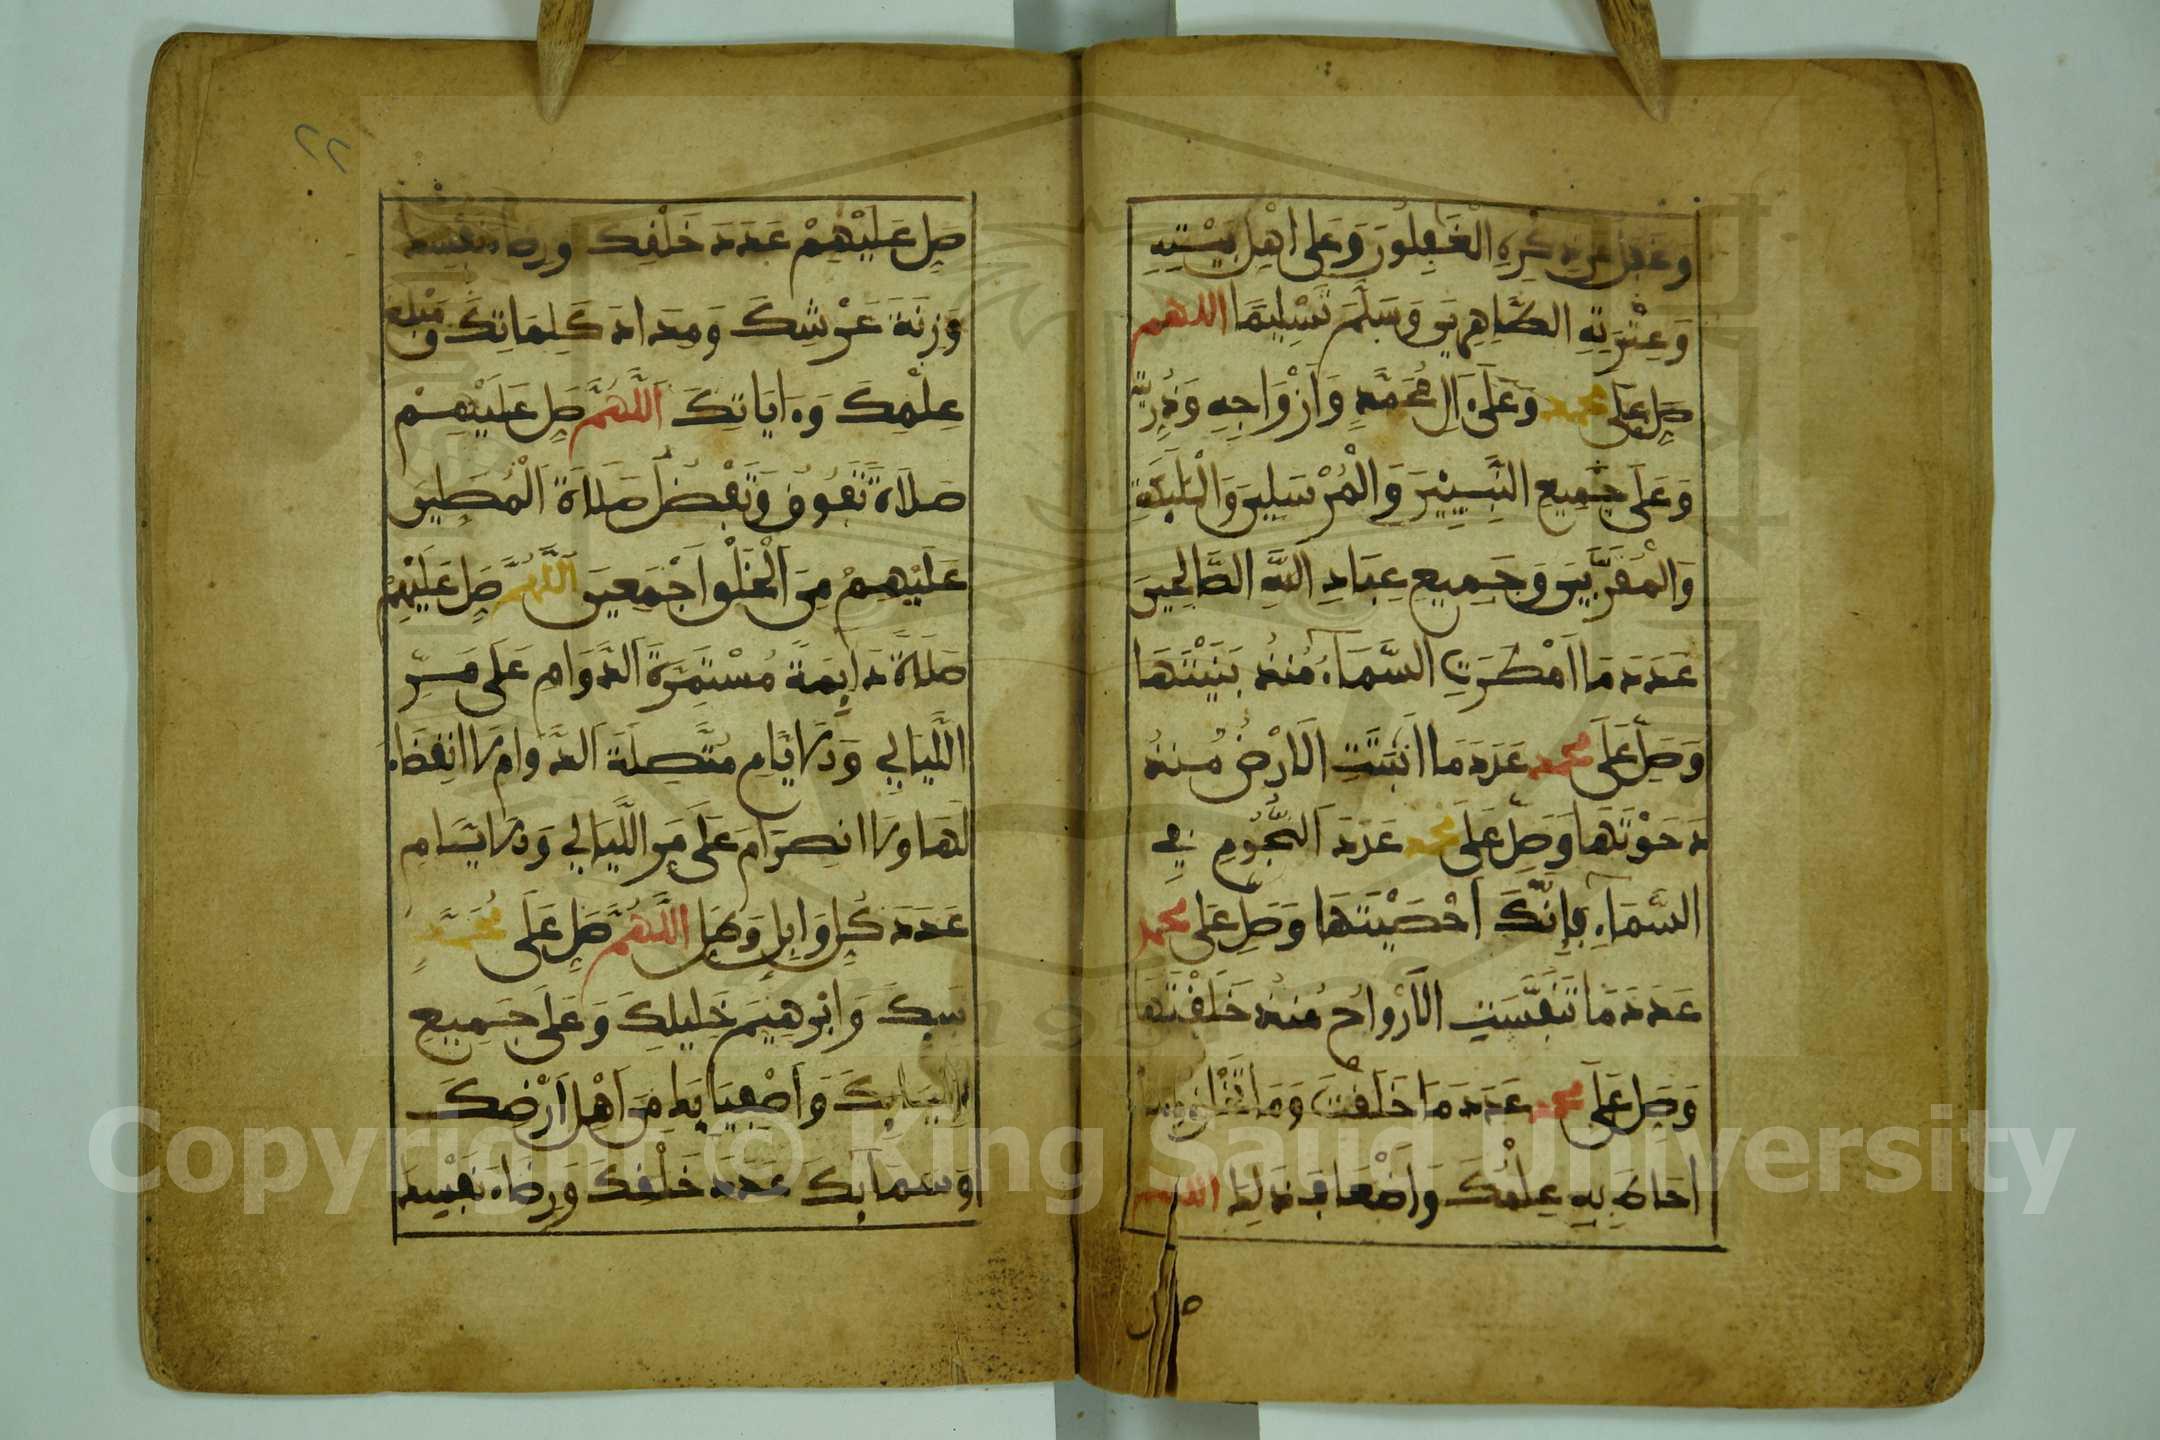 وَغَفَلَ عَن ذِكْرِهِ الْغَٰفِلُونَ وَعَلَى أَهْلِ بَيْتِهِ
وَعِتْرَتِهِ الطَّاهِرِينَ وَسَلَّمَ تَسْلِيمًا اللهم
صَلِّ عَلَى محمد وَعَلَى ءَالِ مُحَمَّدٍ وَأَزْوَاجِهِ وَذُرِّيَّتِهِ
وَعَلَى جَمِيعِ النَّبِيِّينَ وَالْمُرْسَلِينَ وَالْمَلَٰئِكَةِ
وَالْمُقَرَّبِينَ وَجَمِيعِ عِبَادِ اللَّهِ الصَّالِحِينَ
عَدَدَ مَا أَمْطَرَتِ السَّمَاءُ مُنْذُ بَنَيْتَهَا
وَصَلِّ عَلَى محمد عَدَدَ مَا أَنْبَتَتِ الْأَرْضُ مُنْذُ
دَحَوْتَهَا وَصَلِّ عَلَى محمد عَدَدَ النُّجُومِ فِي
السَّمَاءِ فَإِنَّكَ أَحْصَيْتَهَا وَصَلِّ عَلَى محمد
عَدَدَ مَا تَنَفَّسَتِ الْأَرْوَاحُ مُنْذُ خَلَقْتَهَا
وَصَلِّ عَلَى محمد عَدَدَ مَا خَلَقْتَ وَمَا تَخْلُقُ وَمَا
أَحَاطَ بِهِ عِلْمُكَ وَأَضْعَافَ ذَلِكَ اللهم
صل
٢٢
صَلِّ عَلَيْهِمْ عَدَدَ خَلْقِكَ وَرِضَاءَ نَفْسِكَ
وَزِنَةَ عَرْشِكَ وَمِدَادَ كَلِمَاتِكَ وَمَبْلَغَ
عِلْمِكَ وَءَايَاتِكَ اللَّهُمَّ صَلِّ عَلَيْهِمْ
صَلَاةً تَفُوقُ وَتَفْضُلُ صَلَاةَ الْمُصَلِّينَ
عَلَيْهِمْ مِنَ الْخَلْقِ أَجْمَعِينَ اللَّهُمَّ صَلِّ عَلَيْهِمْ
صَلَاةً دَائِمَةً مُسْتَمِرَّةَ الدَّوَامِ عَلَى مَرِّ
اللَّيَالِي وَالْأَيَّامِ مُتَّصِلَةَ الدَّوَامِ لَا انْقِضَاءَ
لَهَا وَلَا انْصِرَامَ عَلَى مَرِّ اللَّيَالِي وَالْأَيَّامِ
عَدَدَ كُلِّ وَابِلٍ وَطَلٍّ اللَّهُمَّ صَلِّ عَلَى مُحَمَّدٍ
نَبِيِّكَ وَإِبْرَهِيمَ خَلِيلِكَ وَعَلَى جَمِيعِ
أَنْبِيَائِكَ وَأَصْفِيَائِكَ مِنْ أَهْلِ أَرْضِكَ
وَسَمَائِكَ عَدَدَ خَلْقِكَ وَرِضَاءَ نَفْسِكَ
Copyright © King Saud University